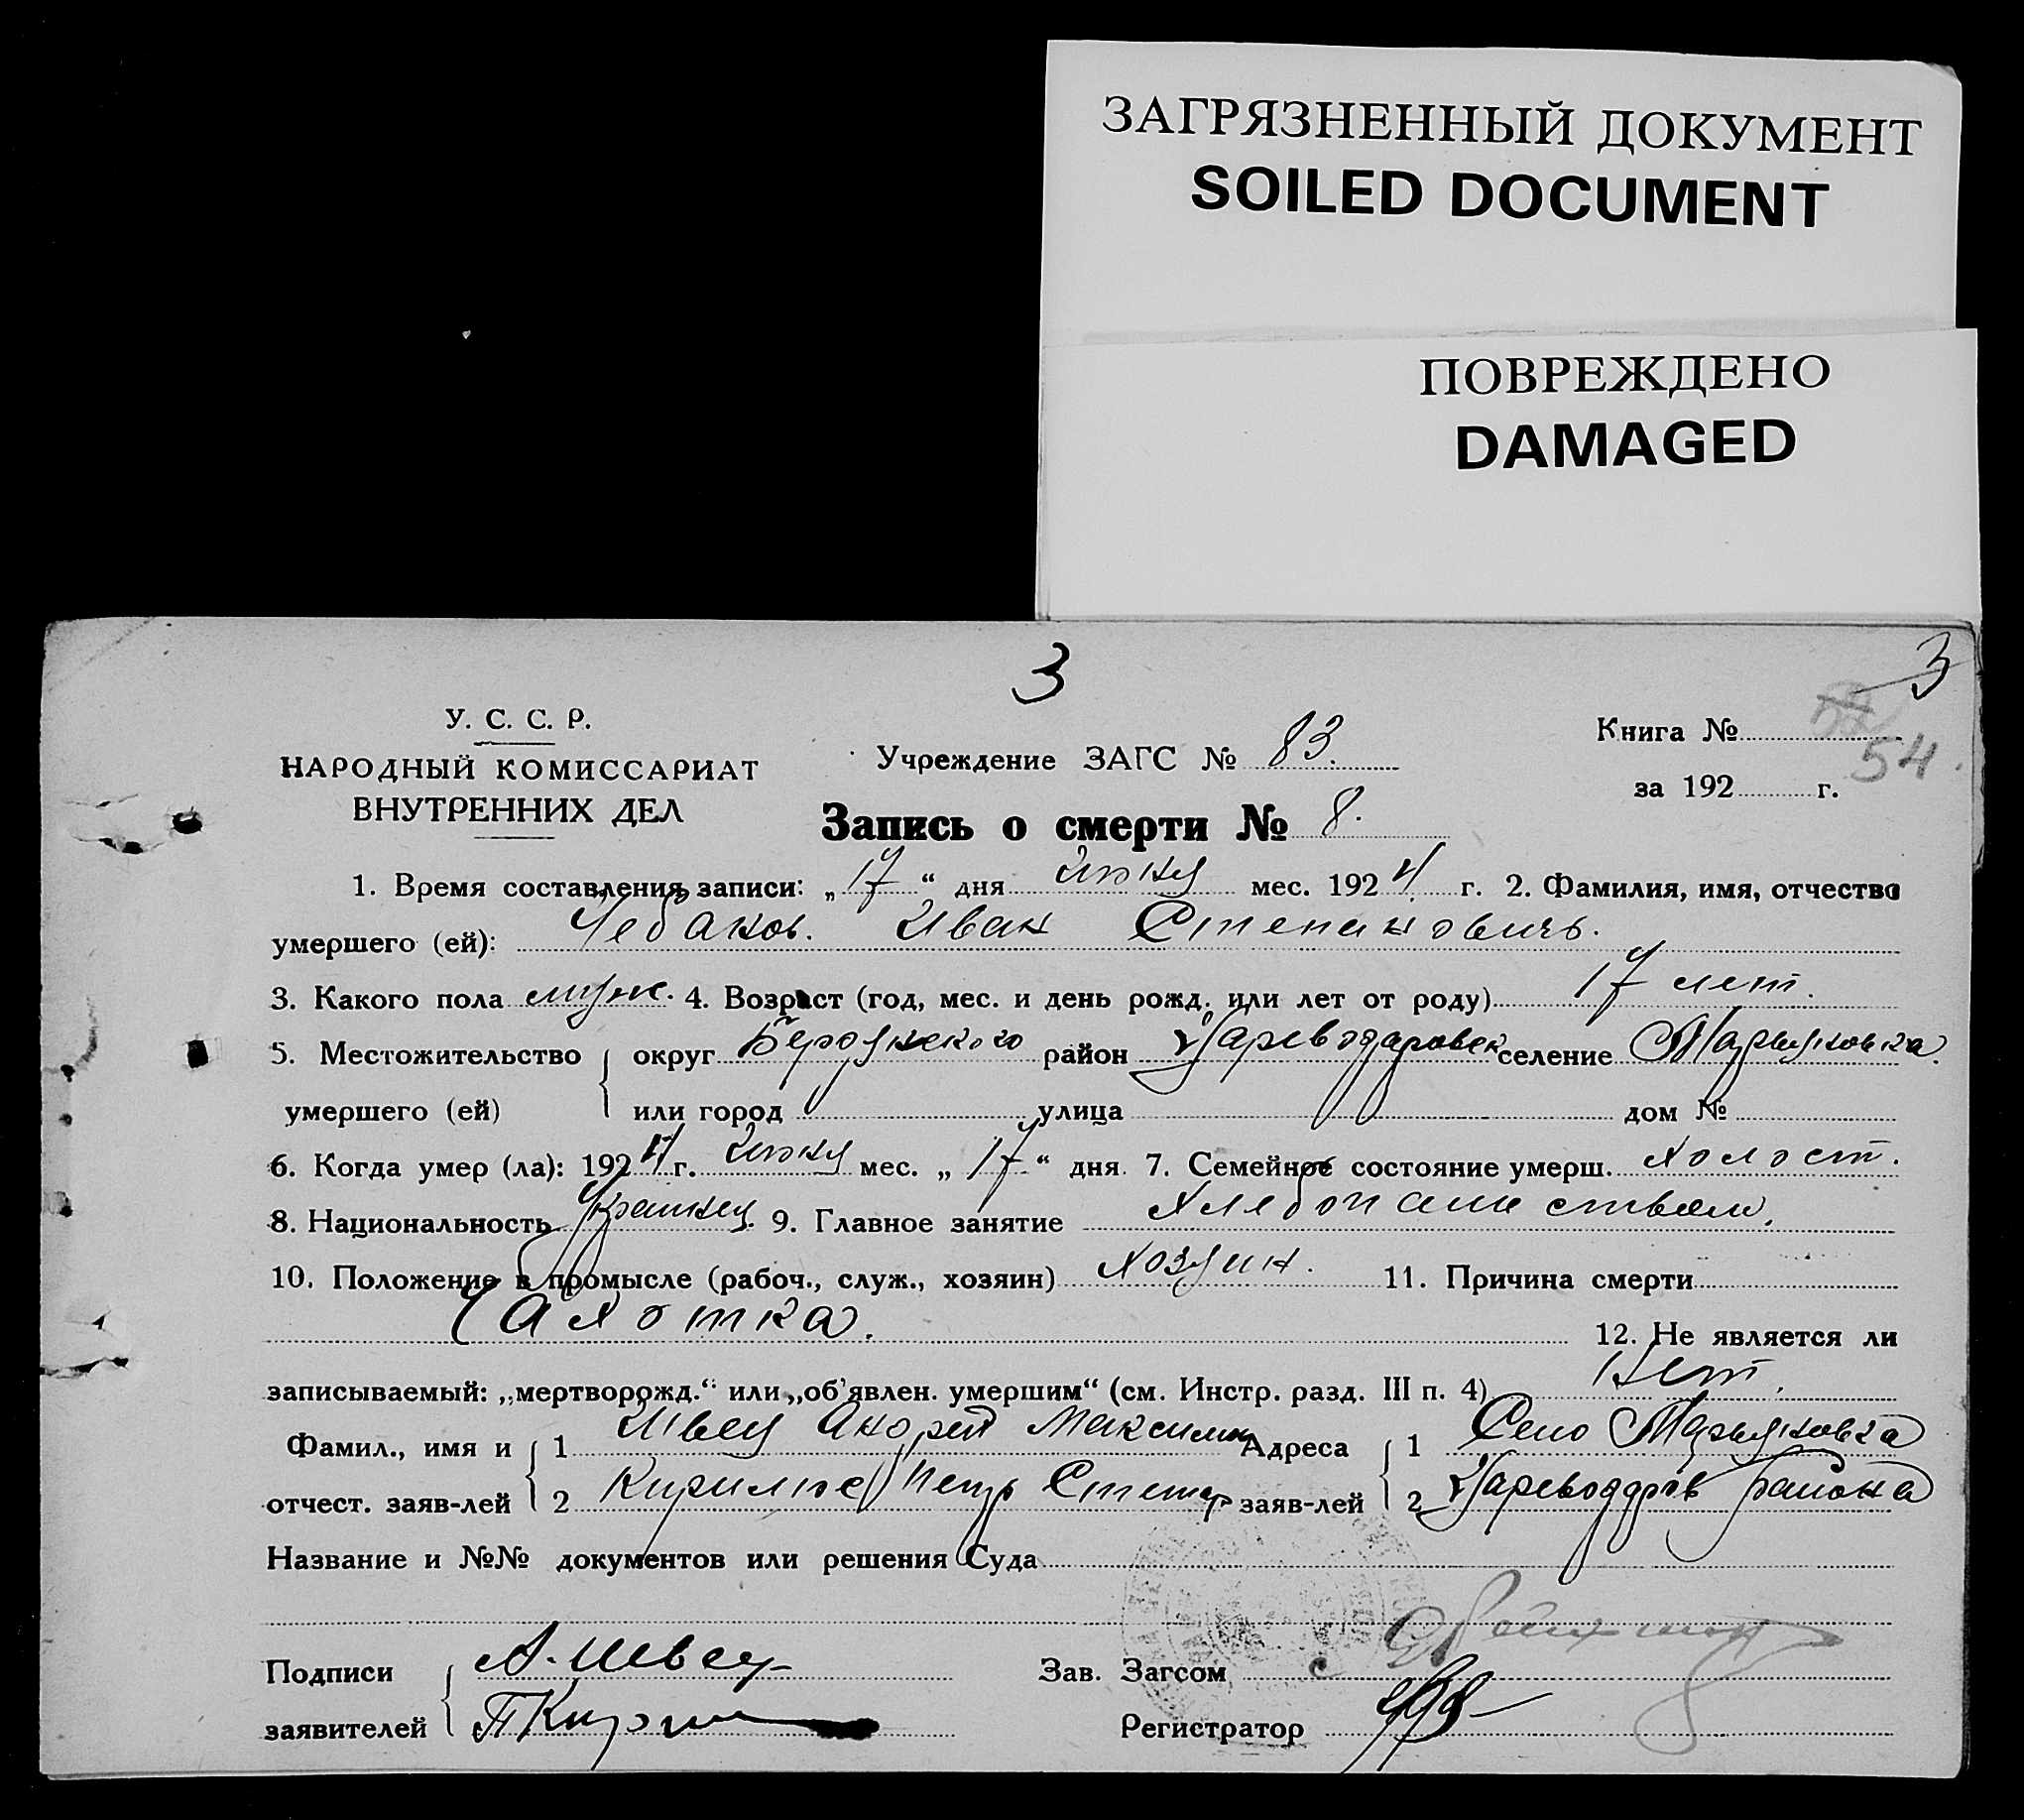 ЗАГРЯЗНЕННЫЙ ДОКУМЕНТ
SOILED DOCUMENT
ПОВРЕЖДЕНО
DAMAGED
3
3
У. С. С. Р.
НАРОДНЫЙ КОМИССАРИАТ
ВНУТРЕННИХ ДЕЛ
Учреждение ЗАГС № 83.
Книга №
54
за 192 г.
Запись о смерти № 8.
1. Время составления записи: „17“ дня июня мес. 1924 г. 2. Фамилия, имя, отчество
умершего (ей): Чебаков. Иван Степановичъ.
3. Какого пола муж. 4. Возраст (год, мес. и день рожд. или лет от роду) 17 лет.
5. Местожительство округ Бердянского район Цареводаровск селение Марьяновка.
умершего (ей) или город улица дом №
6. Когда умер (ла): 1924 г. июня мес. „17“ дня. 7. Семейное состояние умерш. холост.
8. Национальность Украинец. 9. Главное занятие
10. Положение в промысле (рабоч., служ., хозяин) хозяин. 11. Причина смерти
Чахотка.
12. Не является ли
записываемый: „мертворожд.“ или „об'явлен. умершим“ (см. Инстр. разд. III п. 4) Нет.
Фамил., имя и 1 Швец Андрей Максимов Адреса 1 Село Марьяновка
отчест. заяв-лей 2 Петр заяв-лей 2 Цареводаров района
Название и №№ документов или решения Суда
Подписи А. Швец
Зав. Загсом
заявителей
Регистратор